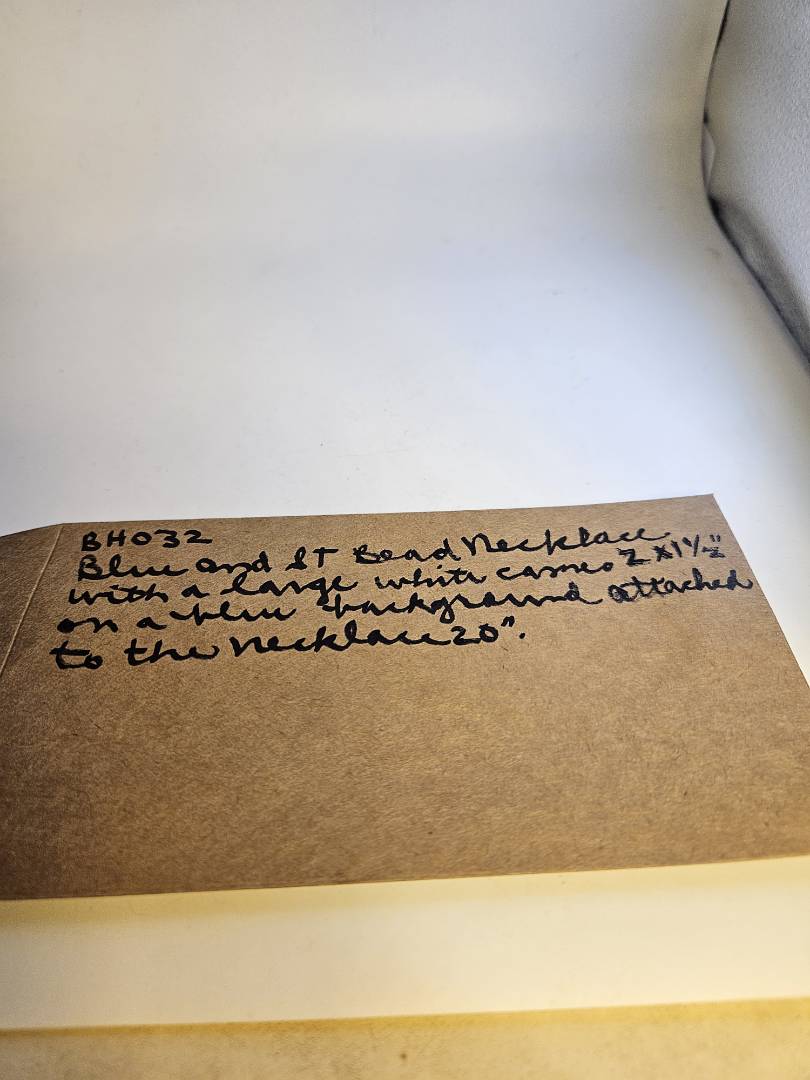 BH032
Blue and ST Bead Necklace
with a large white cameo 2 x 1½"
on a blue background attached
to the necklace 20".